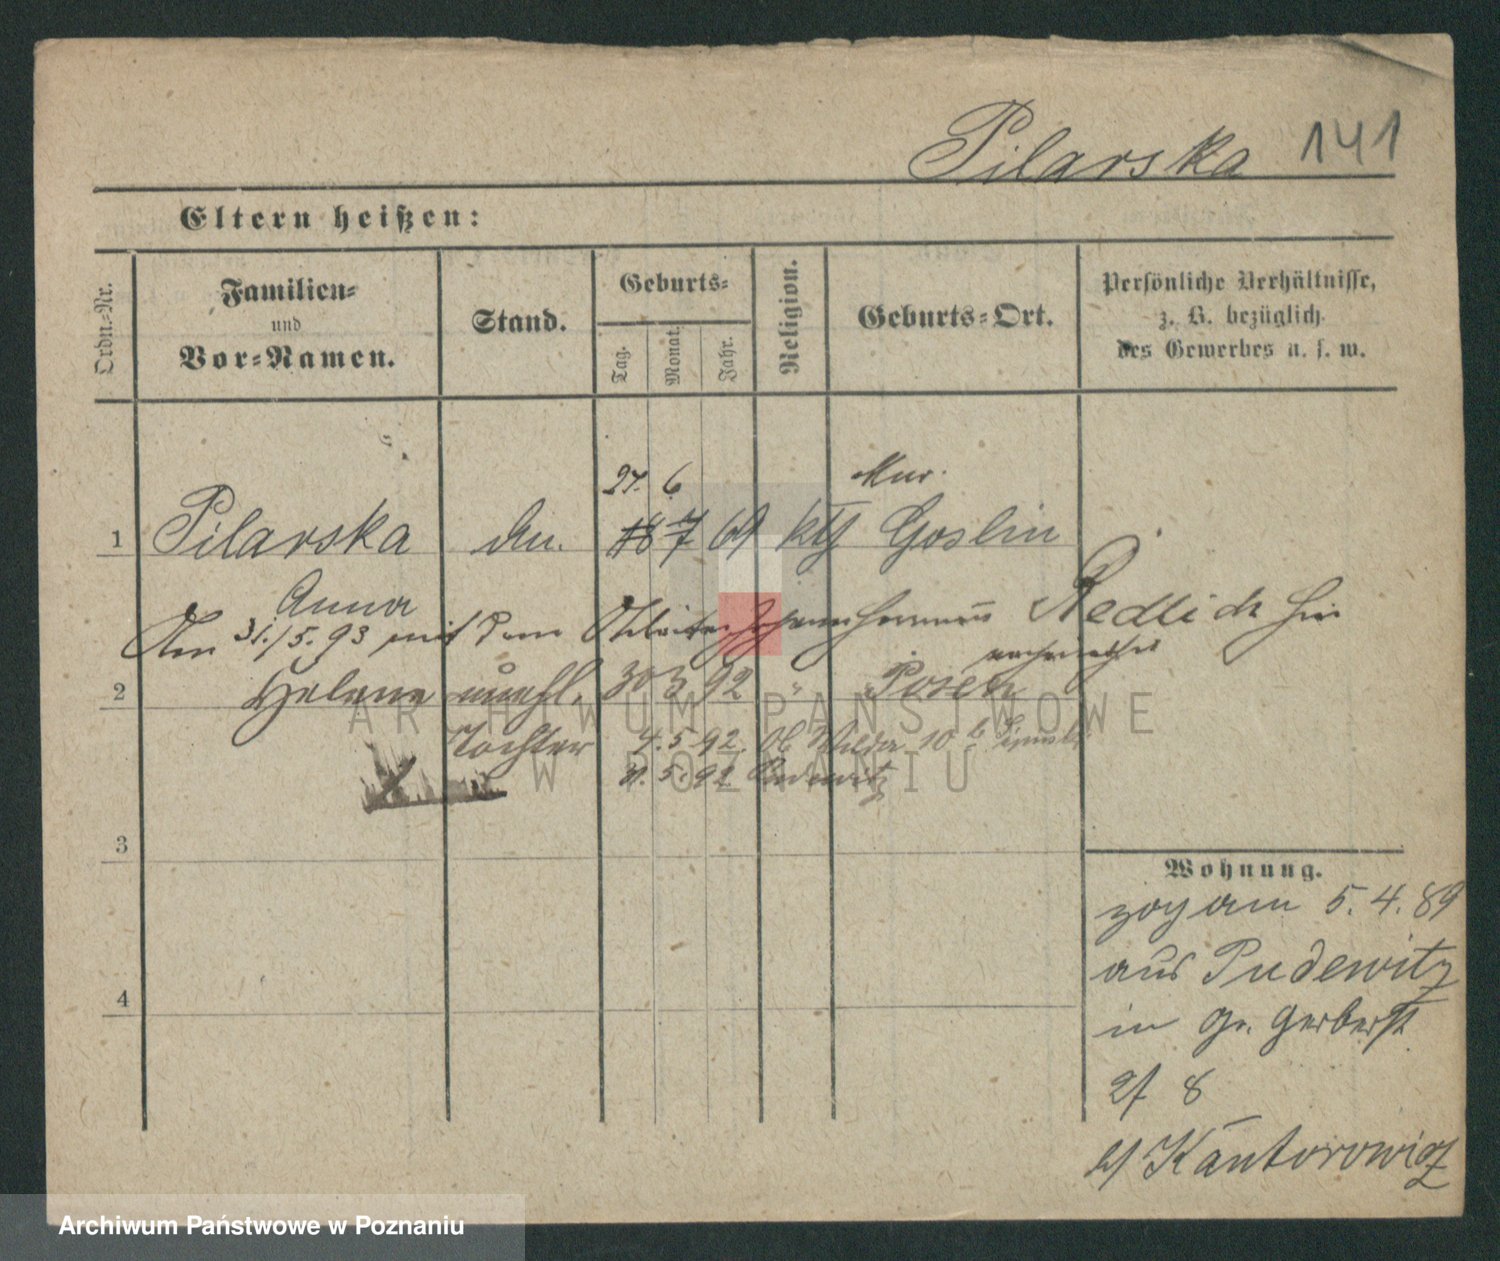 Pilarska 141
Eltern heißen:
Ordn.-Nr.
Familien-
und
Vor-Namen.
Stand.
Geburts-
Tag.
Monat.
Jahr.
Religion.
Geburts-Ort.
Persönliche Verhältnisse,
z. B. bezüglich
des Gewerbes u. s. w.
27. 6 Mur.
1 Pilarska 18 7 69 kth Goslin
Anna
Am 31./5. 93 mit dem Arbeiter Johann Redlich hier
2 Helene unehl. 30 3 92 " Posen
Tochter 4. 5 92. Ob Wilda 10
31. 5. 92 Pudewitz
3
4
Wohnung.
zog am 5. 4. 89
aus Pudewitz
in Gr. Gerberst
8
b/ Kantorowicz
ARCHIWUM PAŃSTWOWE
W POZNANIU
Archiwum Państwowe w Poznaniu